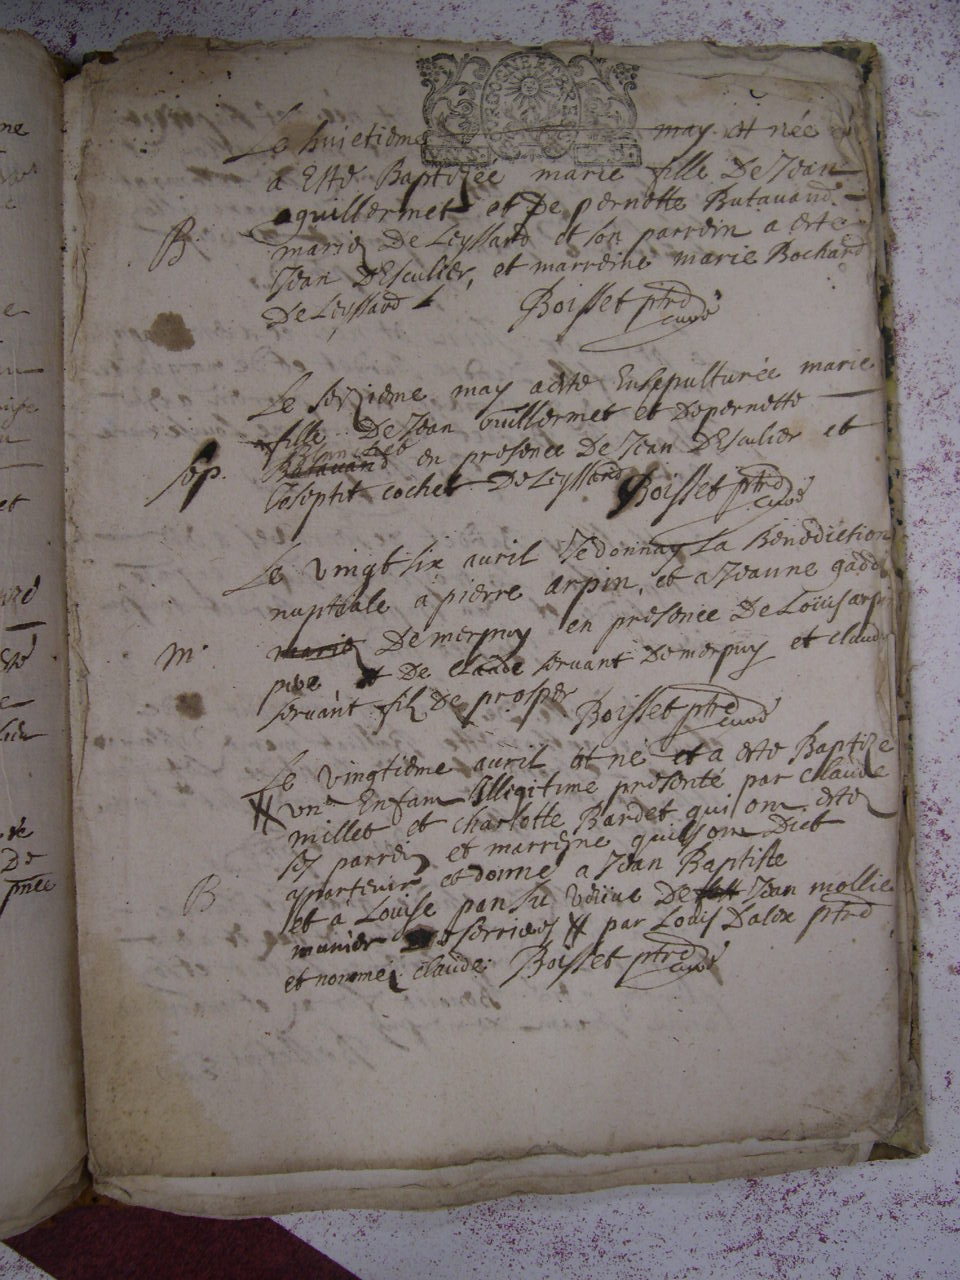 Le huietiême may et née
a Esté Baptizée marie fille De Jean
guillermet et De pernette Butavand
B. mariez De Leyssard et son parrein a esté
Jean DEsculier, et marreine marie Bochard
De Leyssard Boisset ptre
curé
Le seizieme may aesté Ensepulturée marie
fille De Jean Guillermet et Depernette
sep. Butavand en presence De Jean DEsculier et
Joseptit cochet De Leyssard Boisset ptre
curé
Le vingt six avril Jedonnay La Benediction
nuptiale a pierre arpin, et a Jeanne
m. marie De merpuy en presence De Loüis arpin
et De claude servant De merpuy et claude
servant filz De prosper Boisset ptre
curé
Le vingtieme avril et né et a esté Baptize
un Enfam Illegitime presenté par claude
millet et charlotte Bardet qui om estez
ses parrein et marreine quilsom Dict
appartenir et donne a Jean Baptiste
B et à Louise pansu veüve De Jean mollie
munier serrieres par Louis Dalex ptre
et nommé claude Boisset ptre
curé